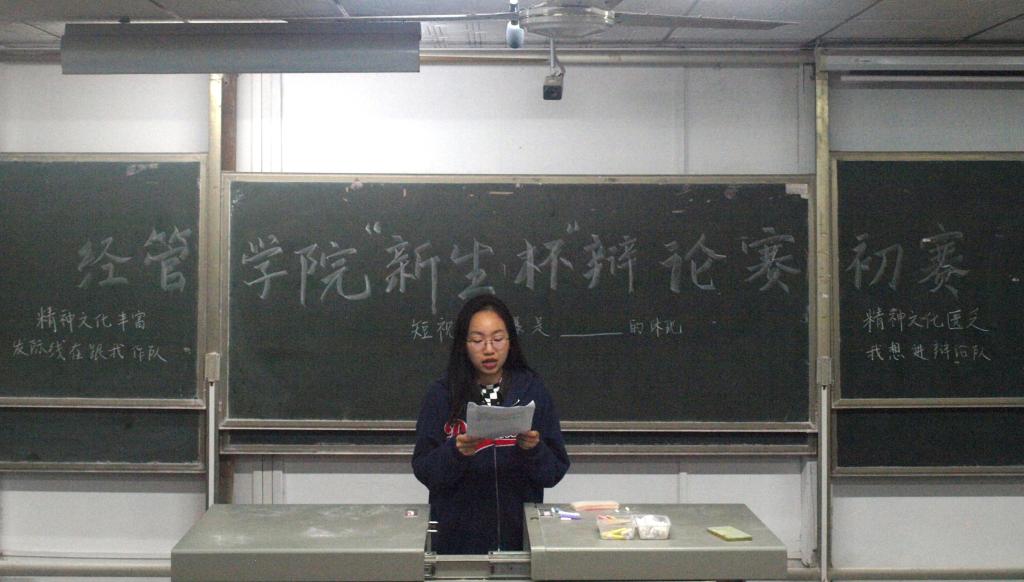 经管学院“新生杯”辩论赛初赛
精神文化丰富
发际线在跟我作队
短视 是______的体现
精神文化匮乏
我想进辩论队